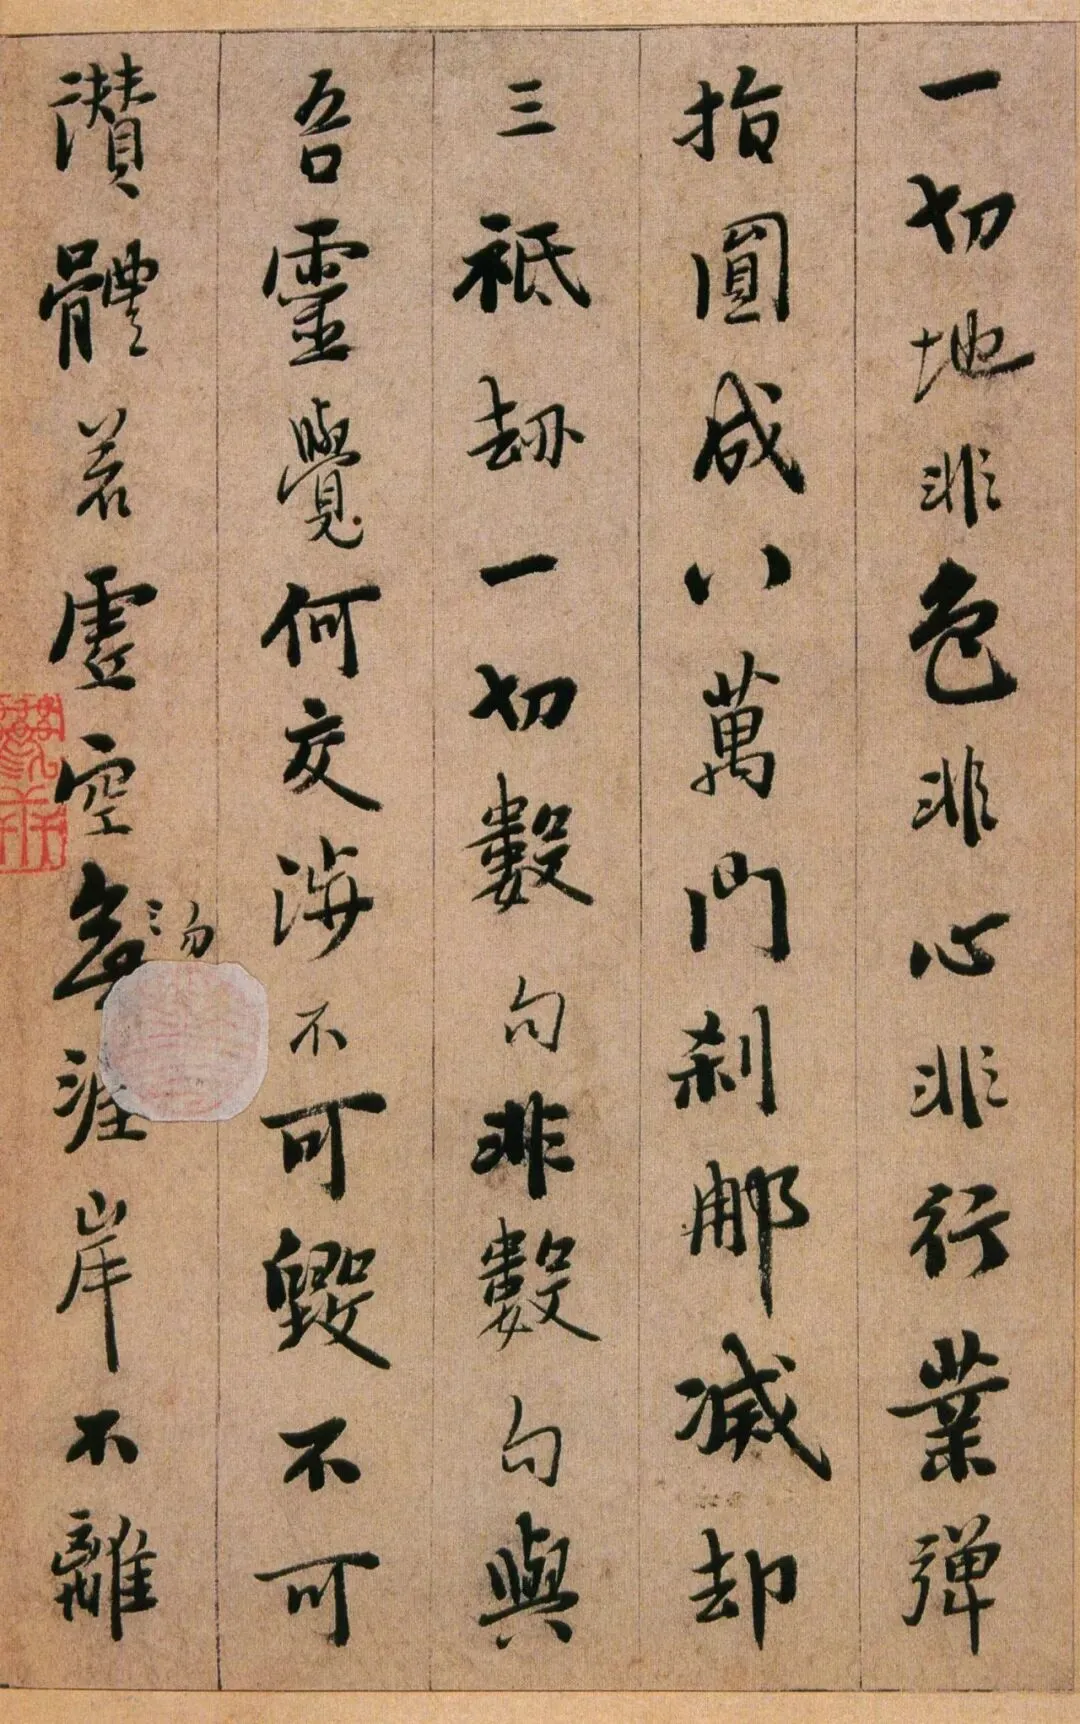 一切地非色非心非行業彈
指圓成八萬門刹那滅却
三祇劫一切數句非數句與
吾靈覺何交涉不可毀不可
讚體若虛空無涯岸不離
勿